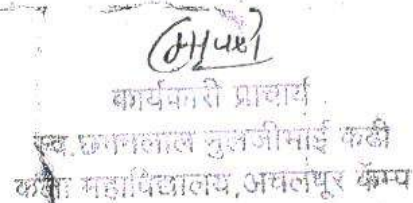 कार्यकारी प्राचार्य
स्व.छगनलाल मुलजीभाई कढी
कला महाविद्यालय,अचलपूर कॅम्प